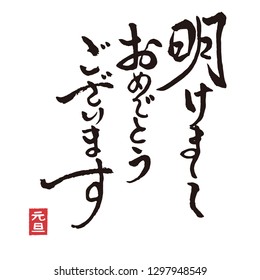 明けまして
おめでとう
ございます
元旦
shutterstock.com · 1297948549